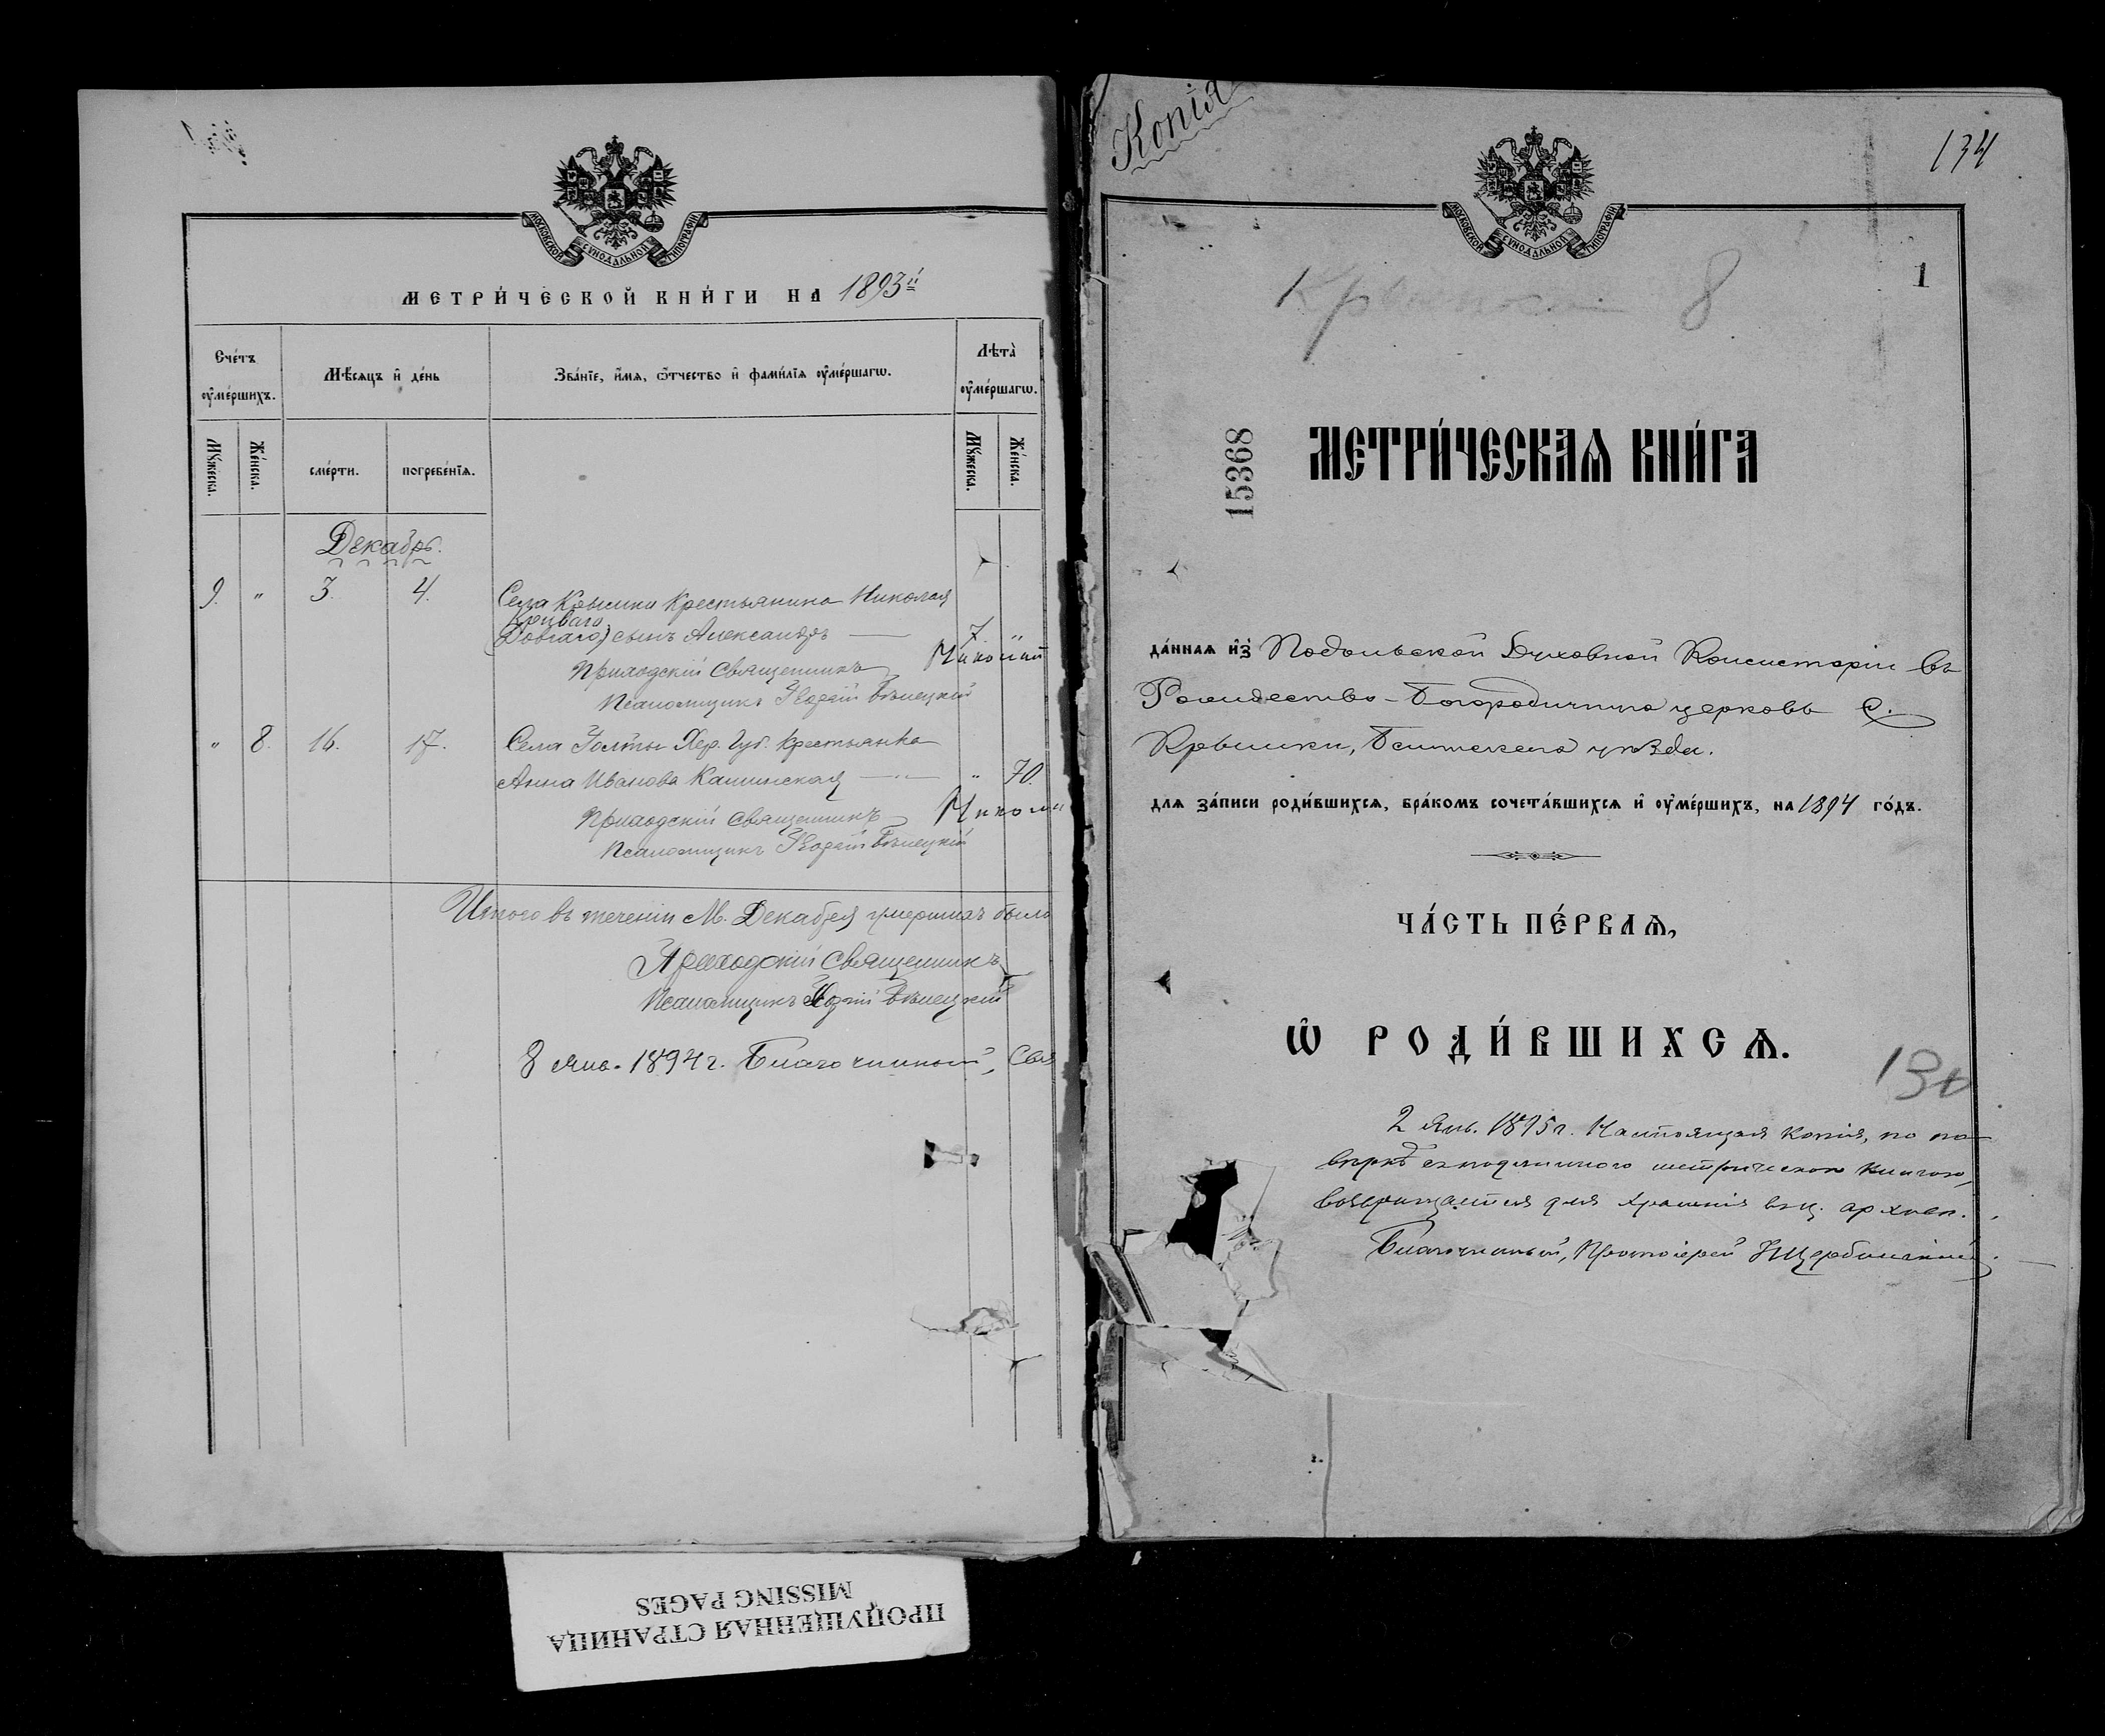 МОСКОВСКОЙ СУНОДАЛЬНОЙ ТИПОГРАФІИ
МЕТРИ́ЧЕСКОЙ КНИ́ГИ НА 1893й
Сче́тъ ᲂу҆ме́ршихъ.
Мѣ́сяцъ и҆ де́нь
Зва́нїе, и҆́мѧ, ѻ҆́тчество и҆ фами́лїѧ ᲂу҆ме́ршагѡ.
Лѣта̀ ᲂу҆ме́ршагѡ.
Мꙋ́жеска.
Же́нска.
сме́рти.
погребе́нїѧ.
Мꙋ́жеска.
Же́нска.
Декабрь.
9. " 3. 4. Села Крымки Крестьянина Николая
Криваго
(Довгаго) сынъ Александръ — 7. "
Приходскій Священникъ Николай
Псаломщикъ
" 8. 16. 17. Села Голты Хер. Губ. крестьянка
Анна Иванова Калинская — " — " 70.
Приходскій Священникъ
Псаломщикъ
Итого въ теченіи М. Декабря умершихъ было
Приходскій Священникъ
Псаломщикъ
8 Янв. 1894 г. Благочинный, Свя
ПРОПУЩЕННАЯ СТРАНИЦА
MISSING PAGES
Копія
134
МОСКОВСКОЙ СУНОДАЛЬНОЙ ТИПОГРАФІИ
1
8
15368
МЕТРИ́ЧЕСКАѦ КНИ́ГА
да́ннаѧ и҆з̾ Подольской Духовной Консисторіи въ
Рождество-Богородичную церковь с.
Крымки, Балтскаго уѣзда.
для за́писи роди́вшихсѧ, бра́комъ сочета́вшихсѧ и҆ ᲂу҆ме́ршихъ, на 1894 го́дъ.
ЧА́СТЬ ПЕ́РВАѦ,
Ѽ РОДИ́ВШИХСѦ.
130
2 Янв. 1895 г. Настоящая копія, по по-
вѣркѣ съ подлинною метрическою книгою,
возвращается для храненія въ ц. архивъ.
Благочинный, Протоіерей Н Щербинскій